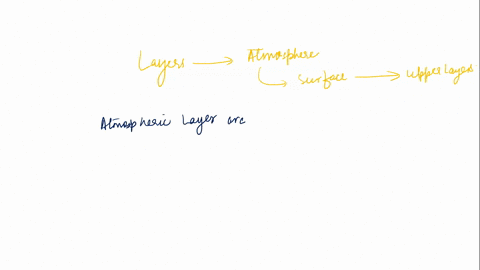 Layers → Atmosphere
↳ surface → upper layers
Atmospheric Layer are